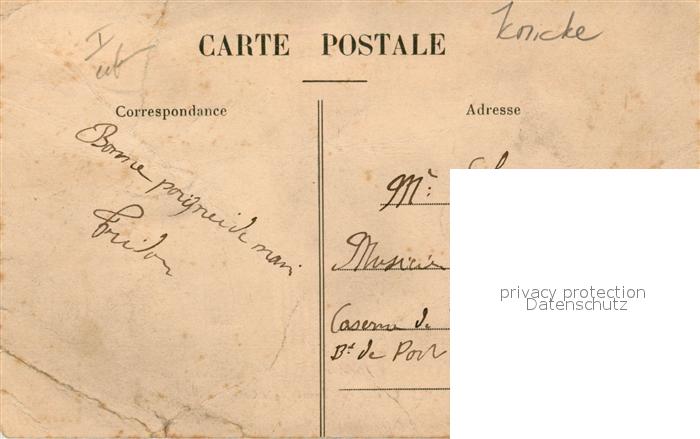 CARTE POSTALE
Correspondance
Adresse
Bonne poignei de main
Mr:
Musicien
Caserne de
Bd de Port
privacy protection
Datenschutz